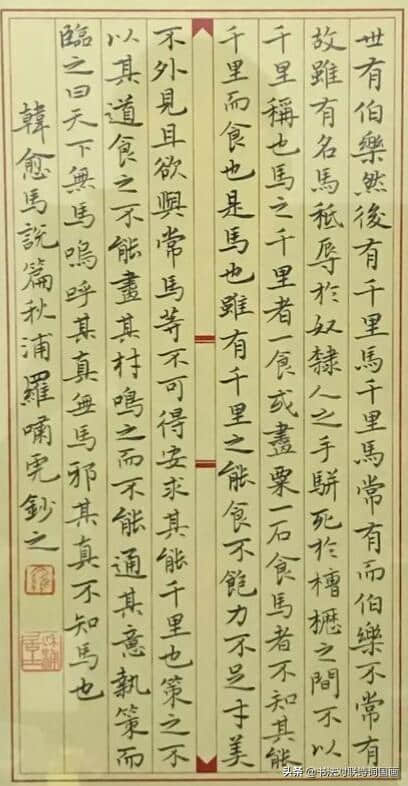 世有伯樂然後有千里馬千里馬常有而伯樂不常有
故雖有名馬秪辱於奴隸人之手駢死於槽櫪之間不以
千里稱也馬之千里者一食或盡粟一石食馬者不知其能
千里而食也是馬也雖有千里之能食不飽力不足才美
不外見且欲與常馬等不可得安求其能千里也策之不
以其道食之不能盡其材鳴之而不能通其意執策而
臨之曰天下無馬嗚呼其真無馬邪其真不知馬也
韓愈馬說篇秋浦羅嘯亮鈔之
头条 @书法对联诗词国画